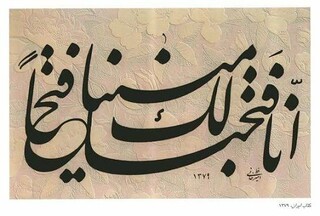 انّا فتحنا لك فتحاً مبينا
۱۳۷۹
کتاب ایران، ۱۳۷۹